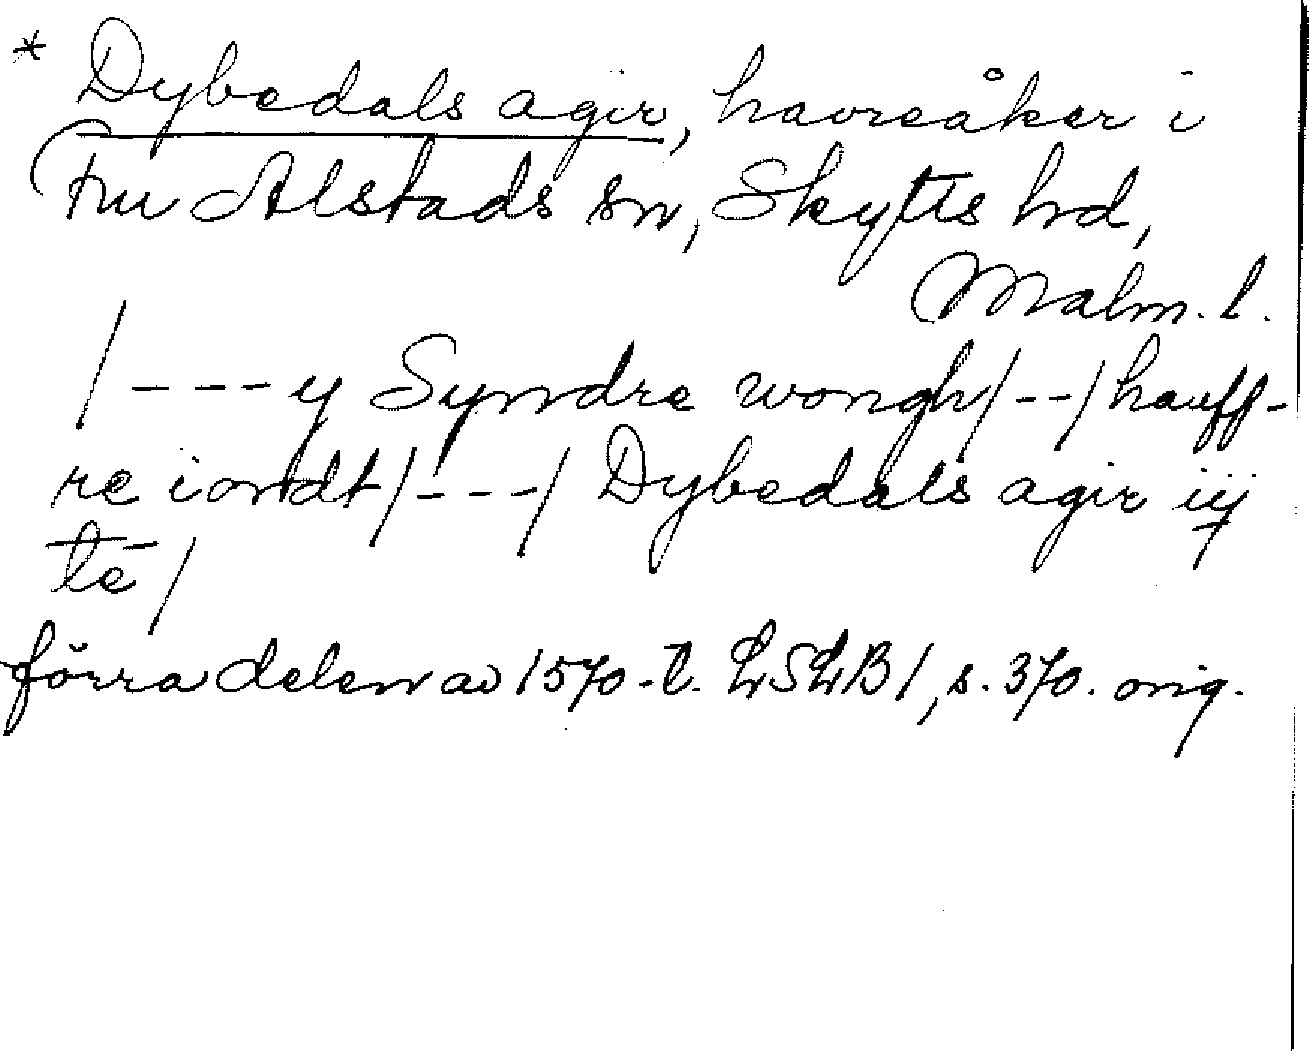 * Dybedals agir, havreåker i
Fru Alstads sn, Skytts hd,
Malm. l.
/---y Syndre wongh/--/hauff-
re iordt/---/ Dybedals agir iij
te/
förra delen av 1570-t. LSLB1, s. 370. orig.